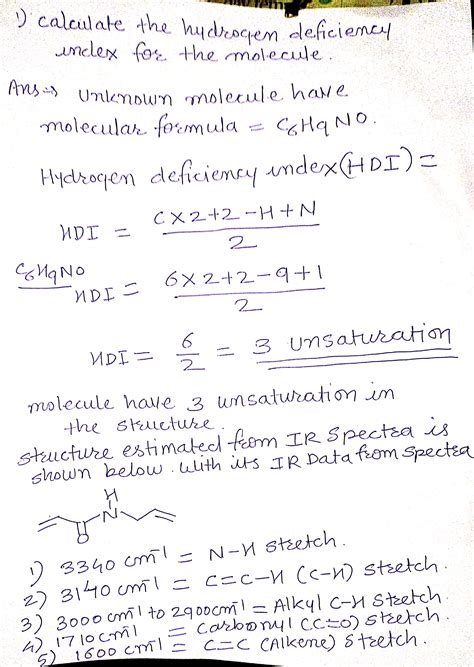 1) calculate the hydrogen deficiency
index for the molecule.
Ans:⇒ Unknown molecule have
molecular formula = C6H9NO.
Hydrogen deficiency index (HDI) =
HDI = C×2+2-H+N
2
C6H9NO
HDI = 6×2+2-9+1
2
HDI = 6/2 = 3 unsaturation
molecule have 3 unsaturation in
the structure.
structure estimated from IR Spectra is
shown below. With its IR Data from Spectra
H
N
O
1) 3340 cm-1 = N-H stretch.
2) 3140 cm-1 = C=C-H (C-H) stretch.
3) 3000 cm-1 to 2900cm-1 = Alkyl C-H stretch.
4) 1710 cm-1 = Carbonyl (C=O) stretch.
5) 1600 cm-1 = C=C (Alkene) stretch.